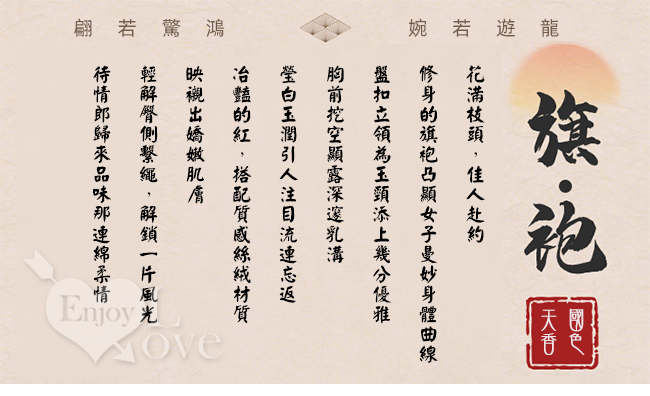 翩若驚鴻
婉若遊龍
旗·袍
國色
天香
花滿枝頭，佳人赴約
修身的旗袍凸顯女子曼妙身體曲線
盤扣立領為玉頸添上幾分優雅
胸前挖空顯露深邃乳溝
瑩白玉潤引人注目流連忘返
冶豔的紅，搭配質感絲絨材質
映襯出嬌嫩肌膚
輕解臀側繫繩，解鎖一片風光
待情郎歸來品味那連綿柔情
Enjoy
Love